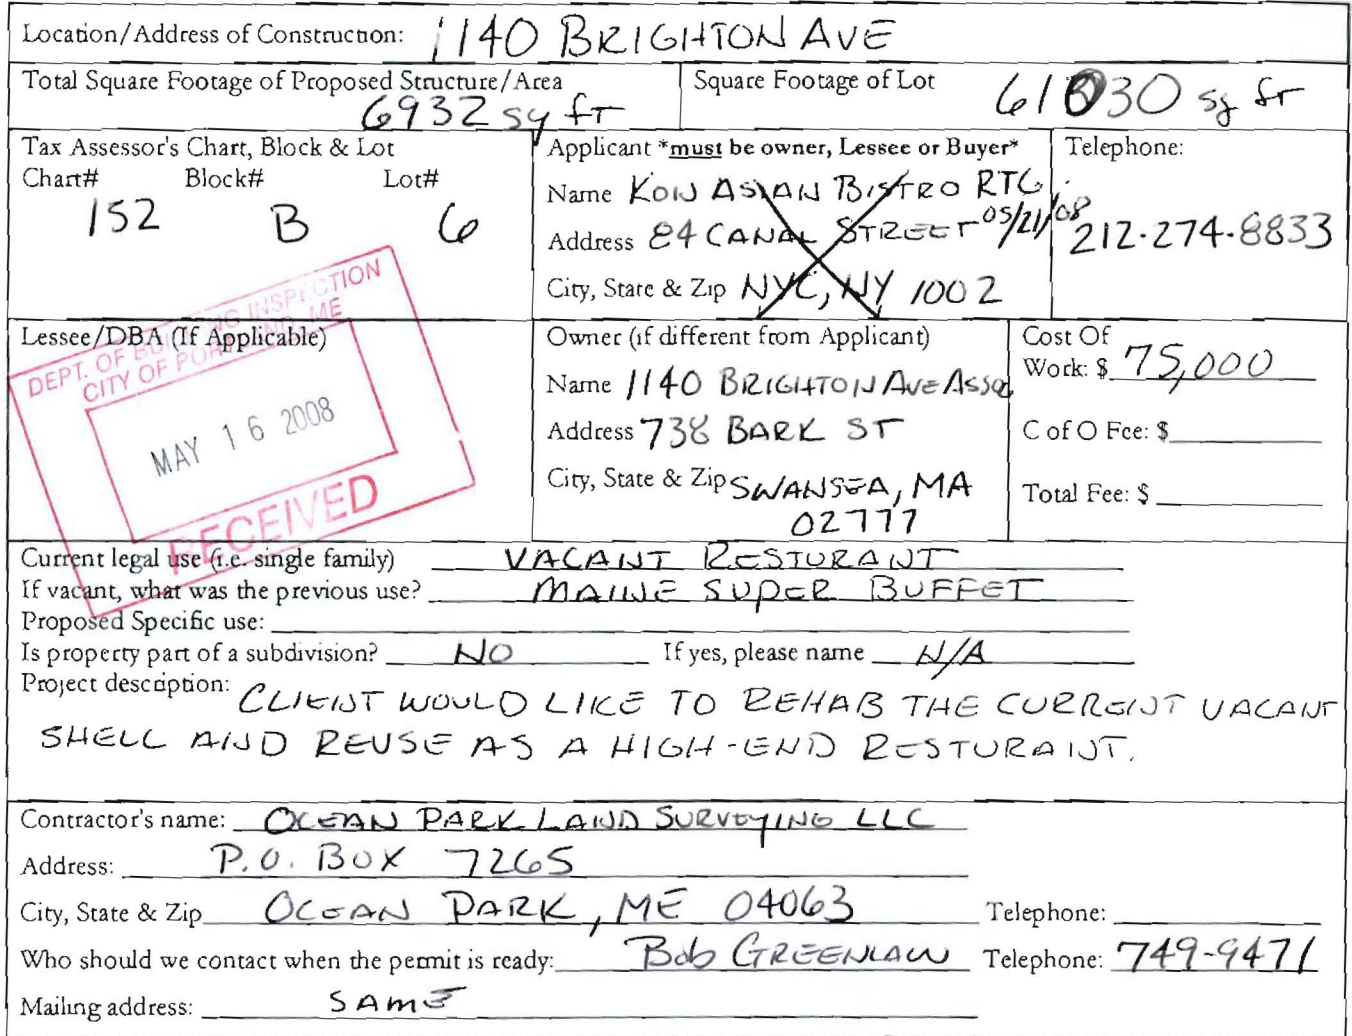 Location/Address of Construction: 1140 BRIGHTON AVE
Total Square Footage of Proposed Structure/Area
6932 sq ft
Square Footage of Lot
61830 sq ft
Tax Assessor's Chart, Block & Lot
Chart# Block# Lot#
152 B 6
Applicant *must be owner, Lessee or Buyer*
Name KOW ASIAN BISTRO RTG.
Address 84 CANAL STREET 05/21/08
City, State & Zip NYC, NY 1002
Telephone:
212-274-8833
Lessee/DBA (If Applicable)
DEPT. OF BUILDING INSPECTION
CITY OF PORTLAND, ME
MAY 16 2008
RECEIVED
Owner (if different from Applicant)
Name 1140 BRIGHTON AVE ASSOC
Address 738 BARK ST
City, State & Zip SWANSEA, MA
02777
Cost Of
Work: $ 75,000
C of O Fee: $
Total Fee: $
Current legal use (i.e. single family) VACANT RESTURANT
If vacant, what was the previous use? MAINE SUPER BUFFET
Proposed Specific use:
Is property part of a subdivision? NO If yes, please name N/A
Project description: CLIENT WOULD LIKE TO REHAB THE CURRENT VACANT
SHELL AND REUSE AS A HIGH-END RESTURAINT.
Contractor's name: OCEAN PARK LAND SURVEYING LLC
Address: P.O. BOX 7265
City, State & Zip OCEAN PARK, ME 04063 Telephone:
Who should we contact when the permit is ready: Bob GREENLAW Telephone: 749-9471
Mailing address: SAME